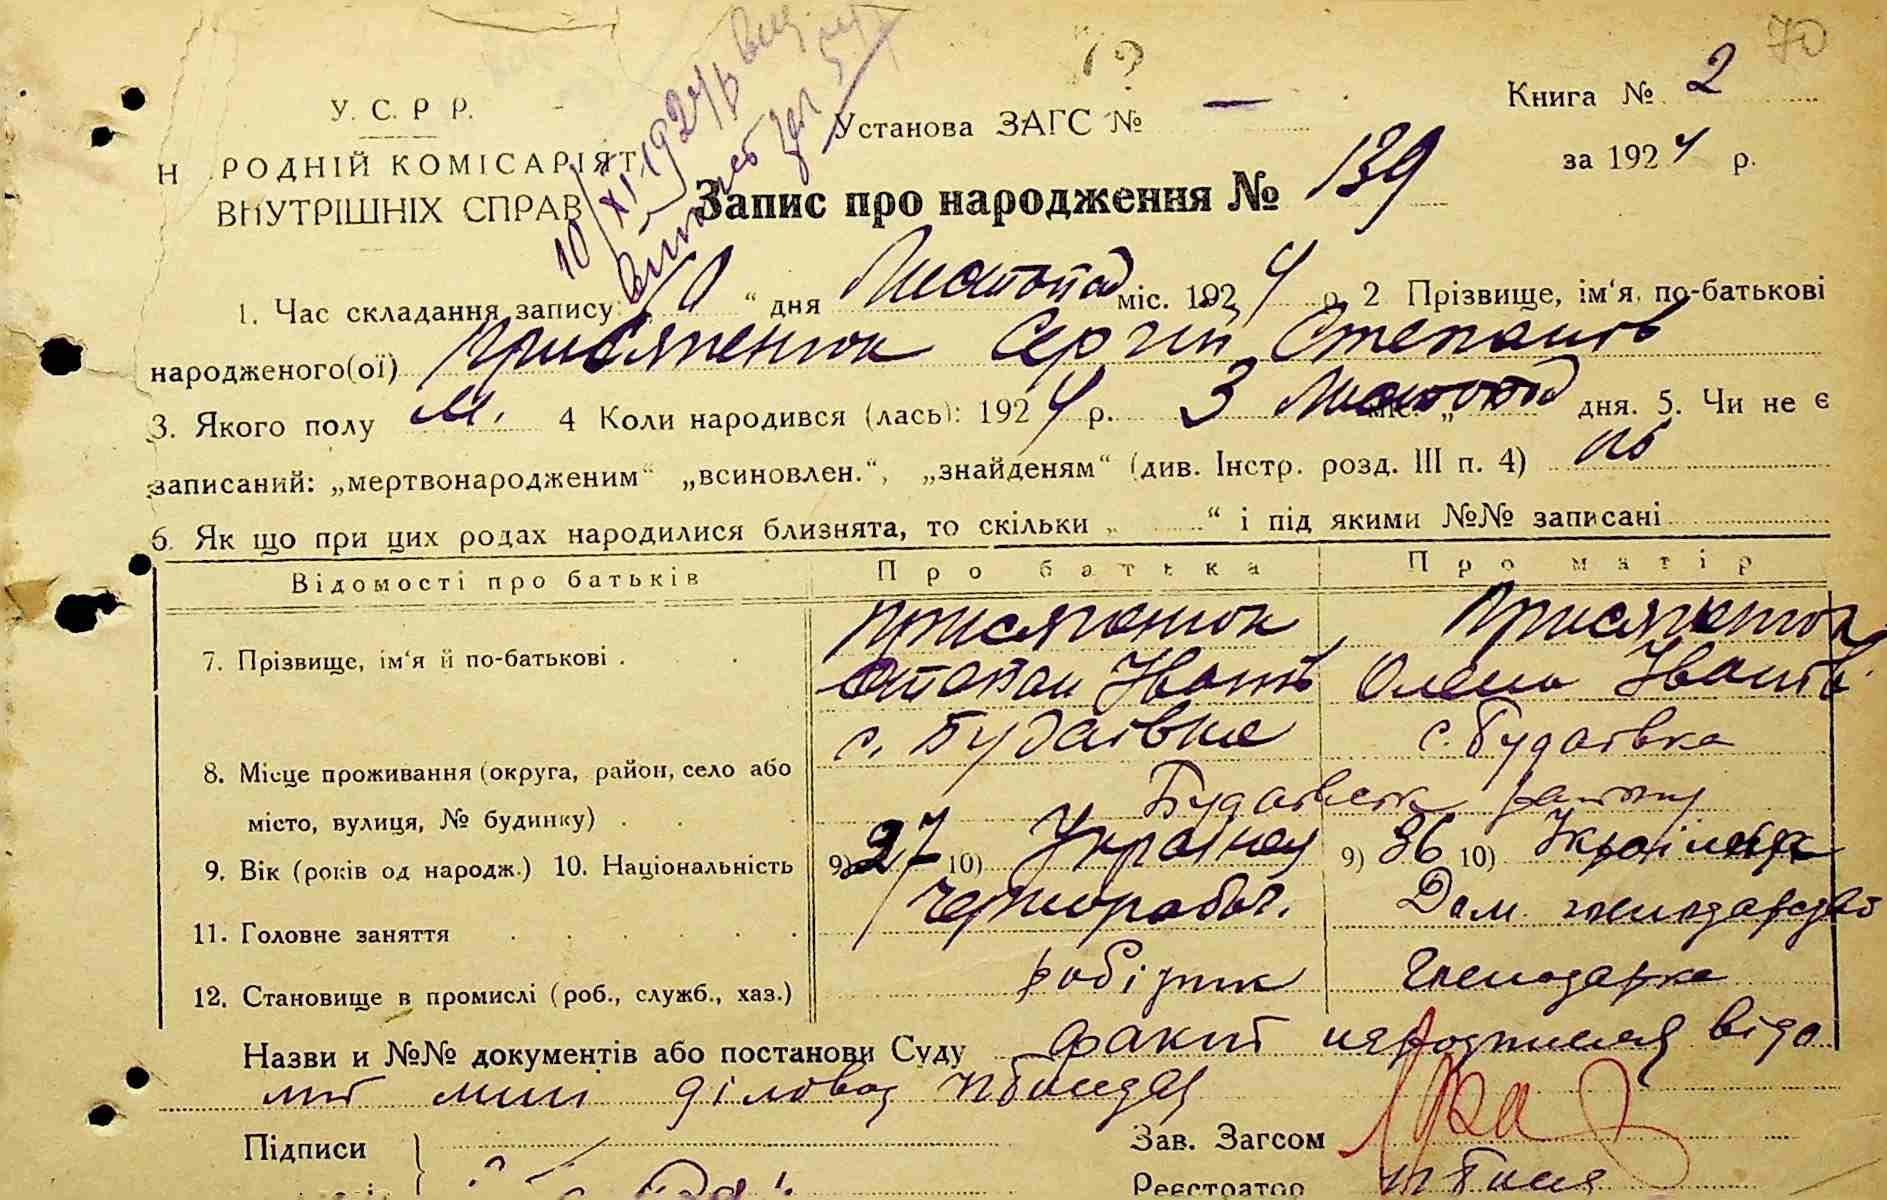 70
У. С. Р. Р.
Н РОДНІЙ КОМІСАРІЯТ
ВНУТРІШНІХ СПРАВ
Установа ЗАГС № —
Книга № 2
за 1924 р.
10/XI 1924 р
Запис про народження № 139
1. Час складання запису 10 “ дня Листопад міс. 1924 р. 2 Прізвище, ім'я, по-батькові
народженого(ої) Присяженюк Сергій Степанів
3. Якого полу м. 4 Коли народився (лась): 1924 р. 3 Листопад міс. „ дня. 5. Чи не є
записаний: „мертвонародженим“ „всиновлен.“, „знайденям“ (див. Інстр. розд. III п. 4) ні
6. Як що при цих родах народилися близнята, то скільки „ “ і під якими №№ записані
Відомості про батьків Про батька Про матір
7. Прізвище, ім'я й по-батькові . Присяженюк Степан Іванів Присяженюк Олена Іванів
8. Місце проживання (округа, район, село або
місто, вулиця, № будинку) . с. Будаївка с. Будаївка
9. Вік (років од народж.) 10. Національність 9) 27 10) 9) 36 10) Українка
11. Головне заняття Чернорабоч. Дом. господарство
12. Становище в промислі (роб., служб., хаз.) робітник господарка
Назви и №№ документів або постанови Суду факт народження відо
мий
Підписи
Зав. Загсом
Реєстратор